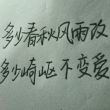 多少春秋风雨改
多少崎岖不变爱